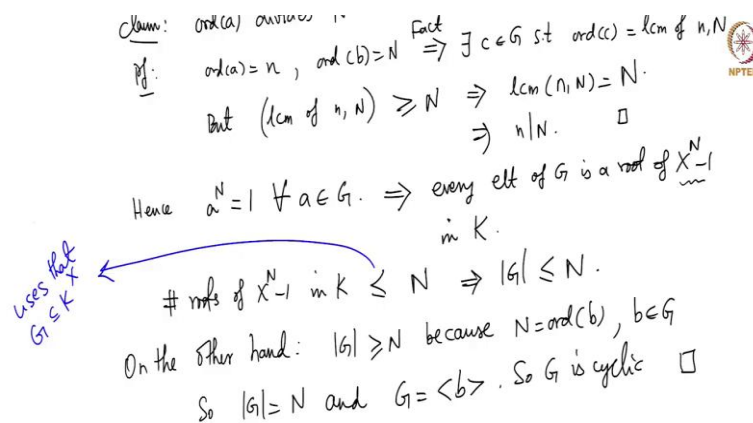 Claim: ord(a) divides N
Pf: ord(a)=n, ord(b)=N Fact ⇒ ∃ c∈G s.t ord(c)=lcm of n,N
But (lcm of n,N) ≥ N ⇒ lcm(n,N)=N.
⇒ n|N. □
Hence a^N=1 ∀ a∈G. ⇒ every elt of G is a root of X^N-1
in K.
uses that
G ⊆ K^×
# roots of X^N-1 in K ≤ N ⇒ |G| ≤ N.
On the other hand: |G| ≥ N because N=ord(b), b∈G
So |G|=N and G=<b>. So G is cyclic □
NPTEL